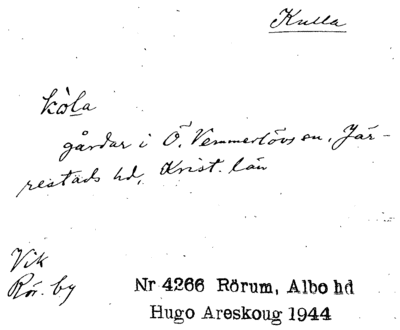 Kulla
kòla
gårdar i Ö. Vemmerlövs sn, Jär-
restads hd, Krist. län
Vik
Rör. by
Nr 4266 Rörum, Albo hd
Hugo Areskoug 1944